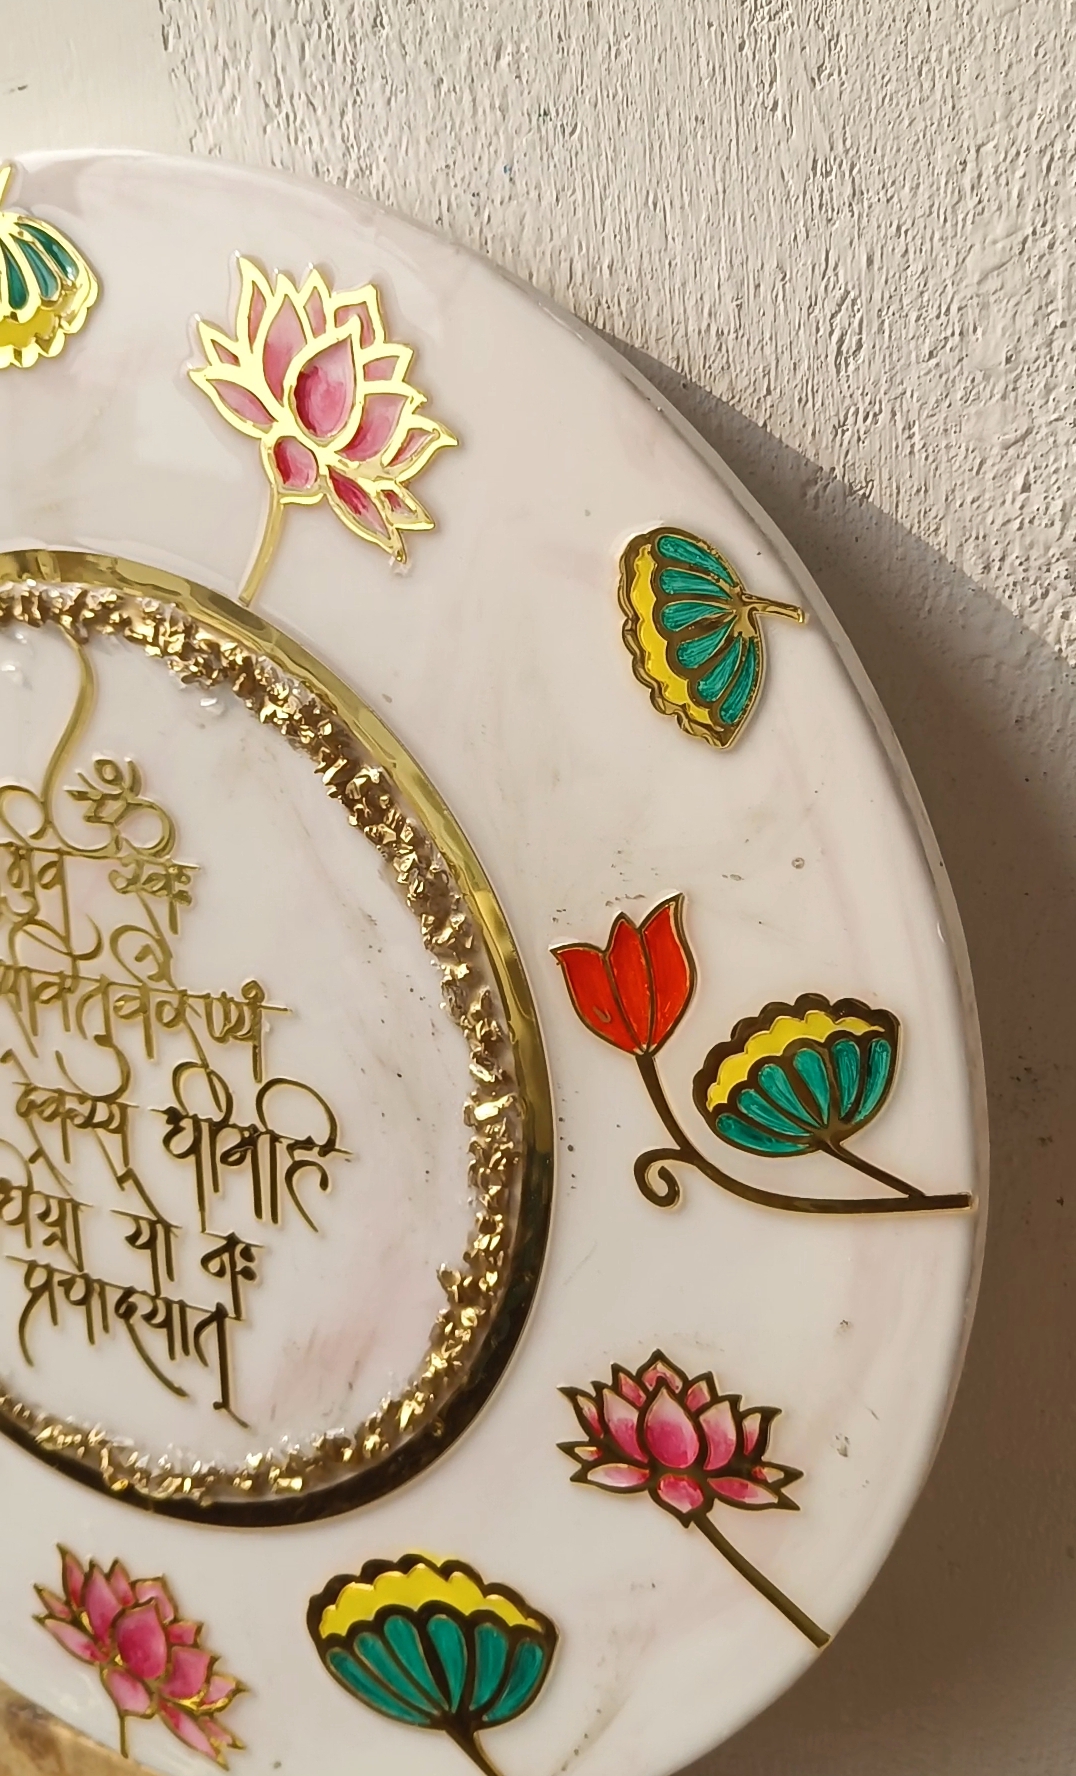 ॐ
र्भुव स्वः
वितुर्वरेण्यं
देवस्य धीमहि
धियो यो नः
प्रचोदयात्